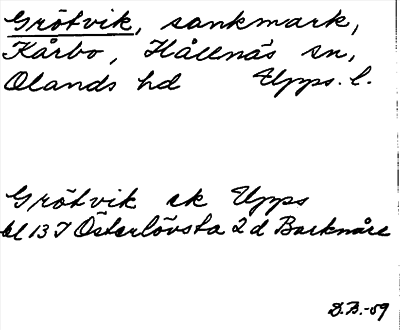 Grötvik, sankmark,
Kårbo, Hållnäs sn,
Olands hd Upps. l.
Grötvik ek Upps
bl 13 I Österlövsta 2 d Barknåre
D.B.-59